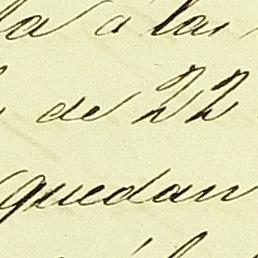 á las
de 22
quedan